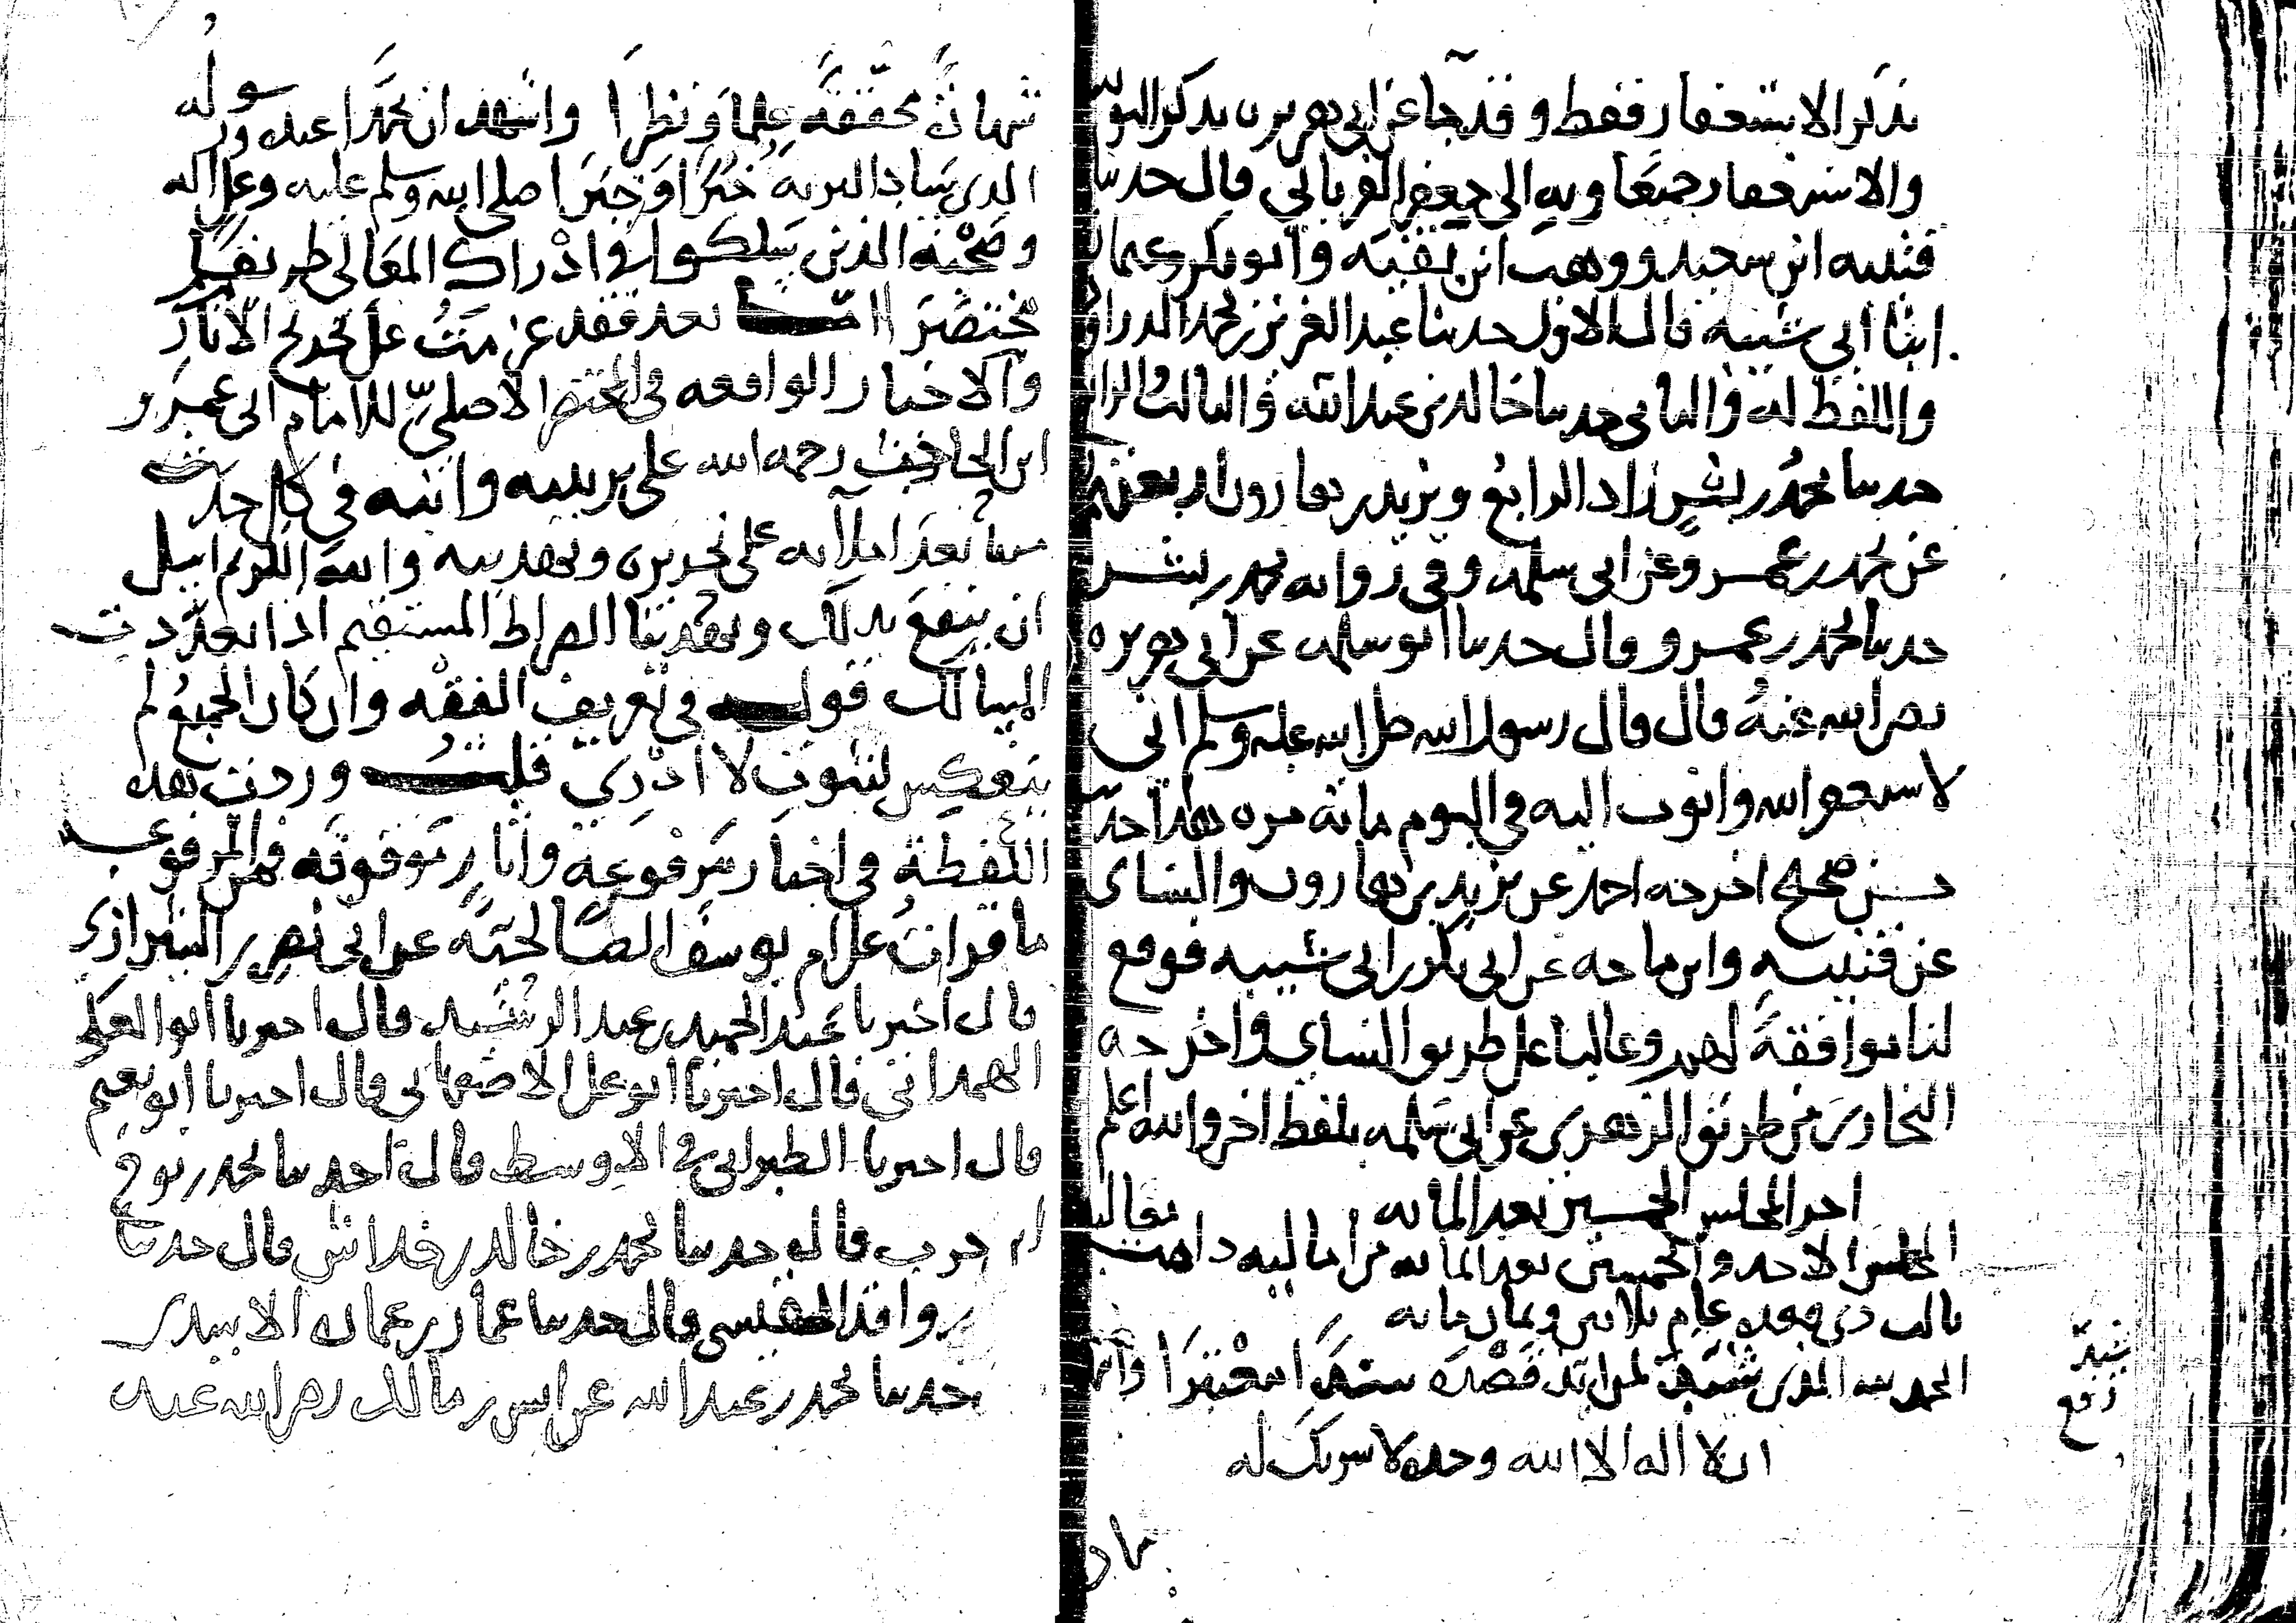 بذكر الاستغفار فقط وقد جا عن ابي هريرة بذكر التوبة
والاستغفار جميعا وبه الى جعفر الفريابي قال حدثنا
قتيبه ابن سعيد ووهب ابن بقية وابو بكر وعثمان
ابنا ابي شيبة قال الاول حدثنا عبد العزيز بن محمد الدراوردي
واللفظ له والثاني حدثنا خالد بن عبد الله والثالث والرابع
حدثنا محمد بن بشر زاد الرابع ويزيد بن هارون
عن محمد بن عمرو عن ابي سلمة وفي رواية محمد بن بشر
حدثنا محمد بن عمرو قال حدثنا ابو سلمة عن ابي هريرة
رضي الله عنه قال قال رسول الله صلى الله عليه وسلم اني
لاستغفر الله واتوب اليه في اليوم مائة مرة هذا حديث
حسن صحيح اخرجه احمد عن يزيد بن هارون والنساي
عن قتيبة وابن ماجه عن ابي بكر بن ابي شيبة فوقع
لنا موافقة لهم وعاليا على طريق النساي واخرجه
البخاري من طريق الزهري عن ابي سلمة بلفظ اخر والله اعلم
اخر المجلس الخمسين بعد المائة
المجلس الاحد والخمسين بعد المائة من اماليه دامت
ثالث ذي قعدة عام ثلاثين وثمان مائة
الحمد لله الذي لمن قصده سندا معتبرا واشهد
ان لا اله الا الله وحده لا شريك له
شهادة محققة علما ونظرا واشهد ان محمدا عبده ورسوله
الذي ساد البرية خبرا وخبرا صلى الله وسلم عليه وعلى اله
وصحبه الذين سلكوا في ادراك المعالي طريقا
مختصرا اما بعد فقد عزمت على تخريج الاثار
والاخبار الواقعة في المختصر الاصلي للامام ابي عمرو
ابن الحاجب رحمه الله على ترتيبه وانبه في كل حديث
منها بعد املائه على تحريره وتهذيبه والله الكريم اسال
ان ينفع بذلك ويهدينا الصراط المستقيم اذا تعددت
المسالك قوله في تعريف الفقه وان كان الجميع لم
ينعكس لثبوت لا ادري قلت وردت هذه
اللفظة في اخبار مرفوعة واثار موقوفة فمن المرفوع
ما قرات على ام يوسف الصالحية عن ابي نصر بن الشيرازي
قال اخبرنا عبد الحميد بن عبد الرشيد قال اخبرنا ابو العلا
الهمداني قال اخبرنا ابو علي الاصبهاني قال اخبرنا ابو نعيم
قال اخبرنا الطبراني في الاوسط قال حدثنا محمد بن نوح
بن حرب قال حدثنا محمد بن خالد بن خداش قال حدثنا
بن واقد القيسي قال حدثنا عمار بن عمارة الازدي
حدثنا محمد بن عبد الله عن انس بن مالك رضي الله عنه